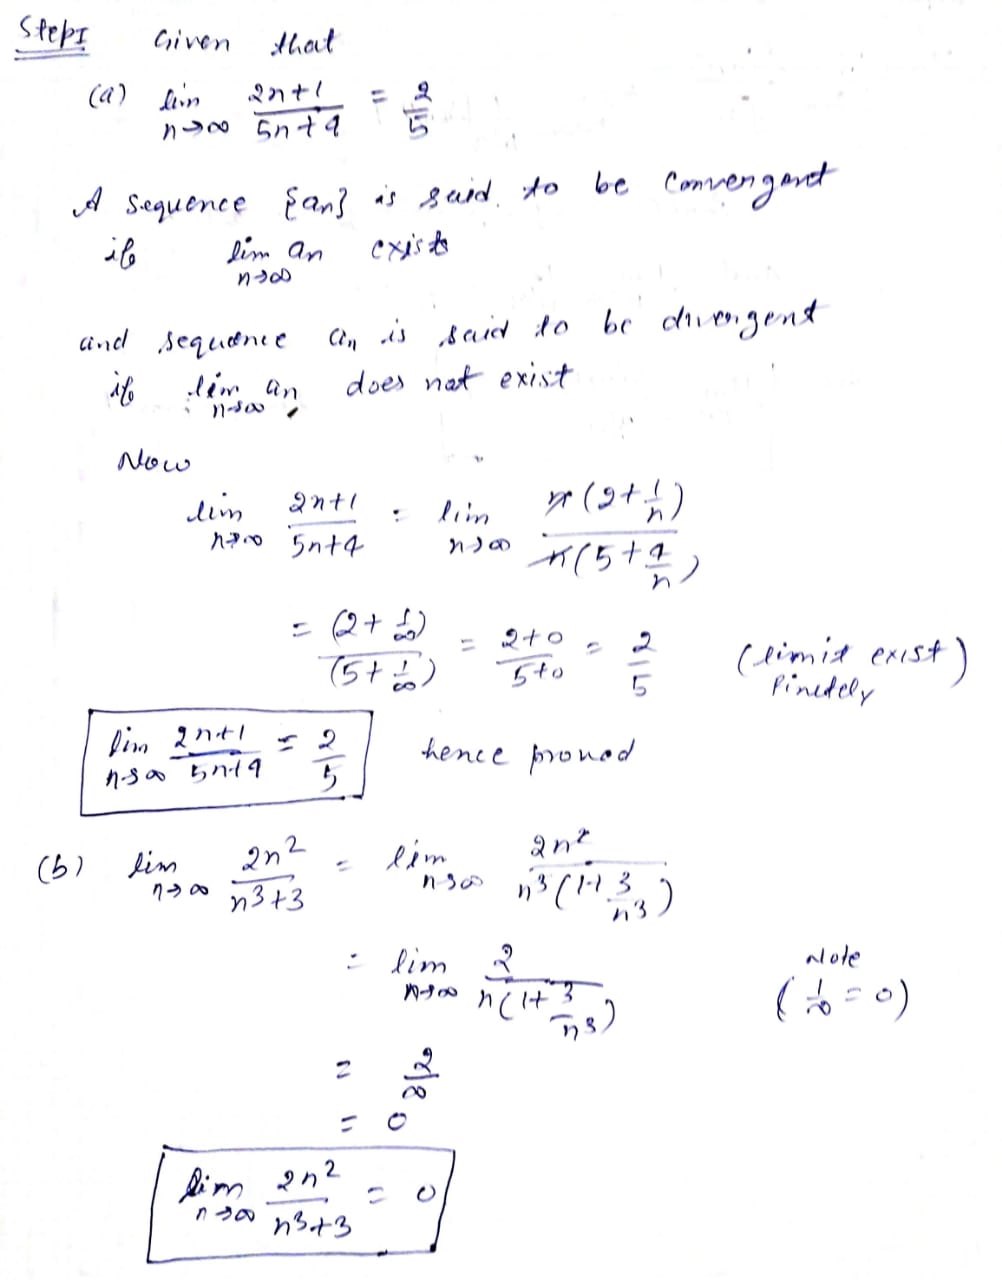 Step I Given that
(a) lim n→∞ 2n+1 / 5n+4 = 2/5
A sequence {an} is said to be convergent
if lim n→∞ an exist
and sequence an is said to be divergent
if lim n→∞ an does not exist
Now
lim n→∞ 2n+1 / 5n+4 = lim n→∞ n(2+1/n) / n(5+4/n)
= (2+1/∞) / (5+1/∞) = 2+0 / 5+0 = 2/5 (limit exist) finitely
lim n→∞ 2n+1 / 5n+4 = 2/5 hence proved
(b) lim n→∞ 2n² / n³+3 = lim n→∞ 2n² / n³(1+3/n³)
= lim n→∞ 2 / n(1+3/n³) Note (1/∞ = 0)
= 2/∞
= 0
lim n→∞ 2n² / n³+3 = 0